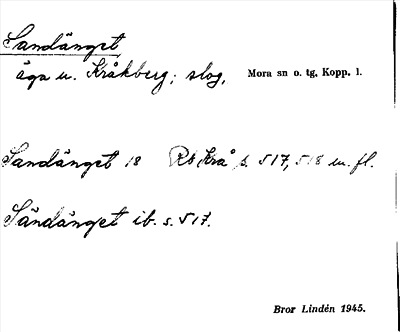 Sandänget,
äga u. Kråkberg; slog, Mora sn o. tg, Kopp. l.
Sandänget 18 Rb Krå s. 517, 518 m. fl.
Sändänget ib. s. 517.
Bror Lindén 1945.